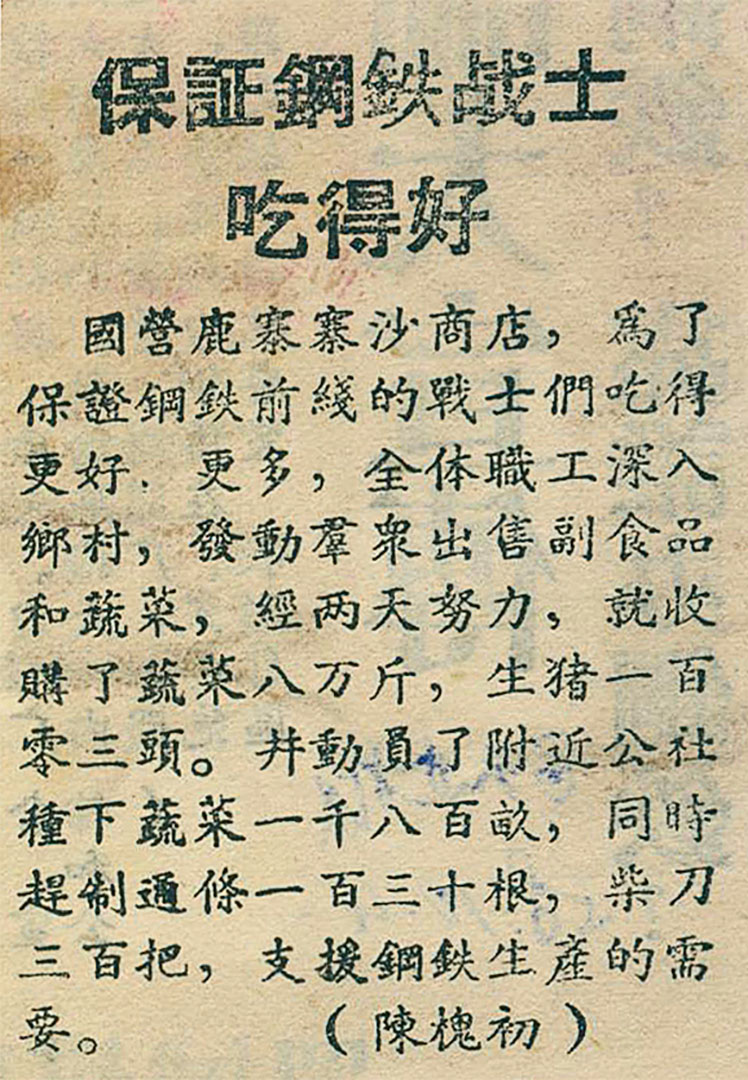 保証鋼鉄战士
吃得好
國营鹿寨寨沙商店，為了
保證鋼鉄前綫的戰士們吃得
更好．更多，全体職工深入
鄉村，發動羣衆出售副食品
和蔬菜，經两天努力，就收
購了蔬菜八万斤，生猪一百
零三頭。井動員了附近公社
種下蔬菜一千八百畝，同時
趕制通條一百三十根，柴刀
三百把，支援鋼鉄生產的需
要。（陳槐初）